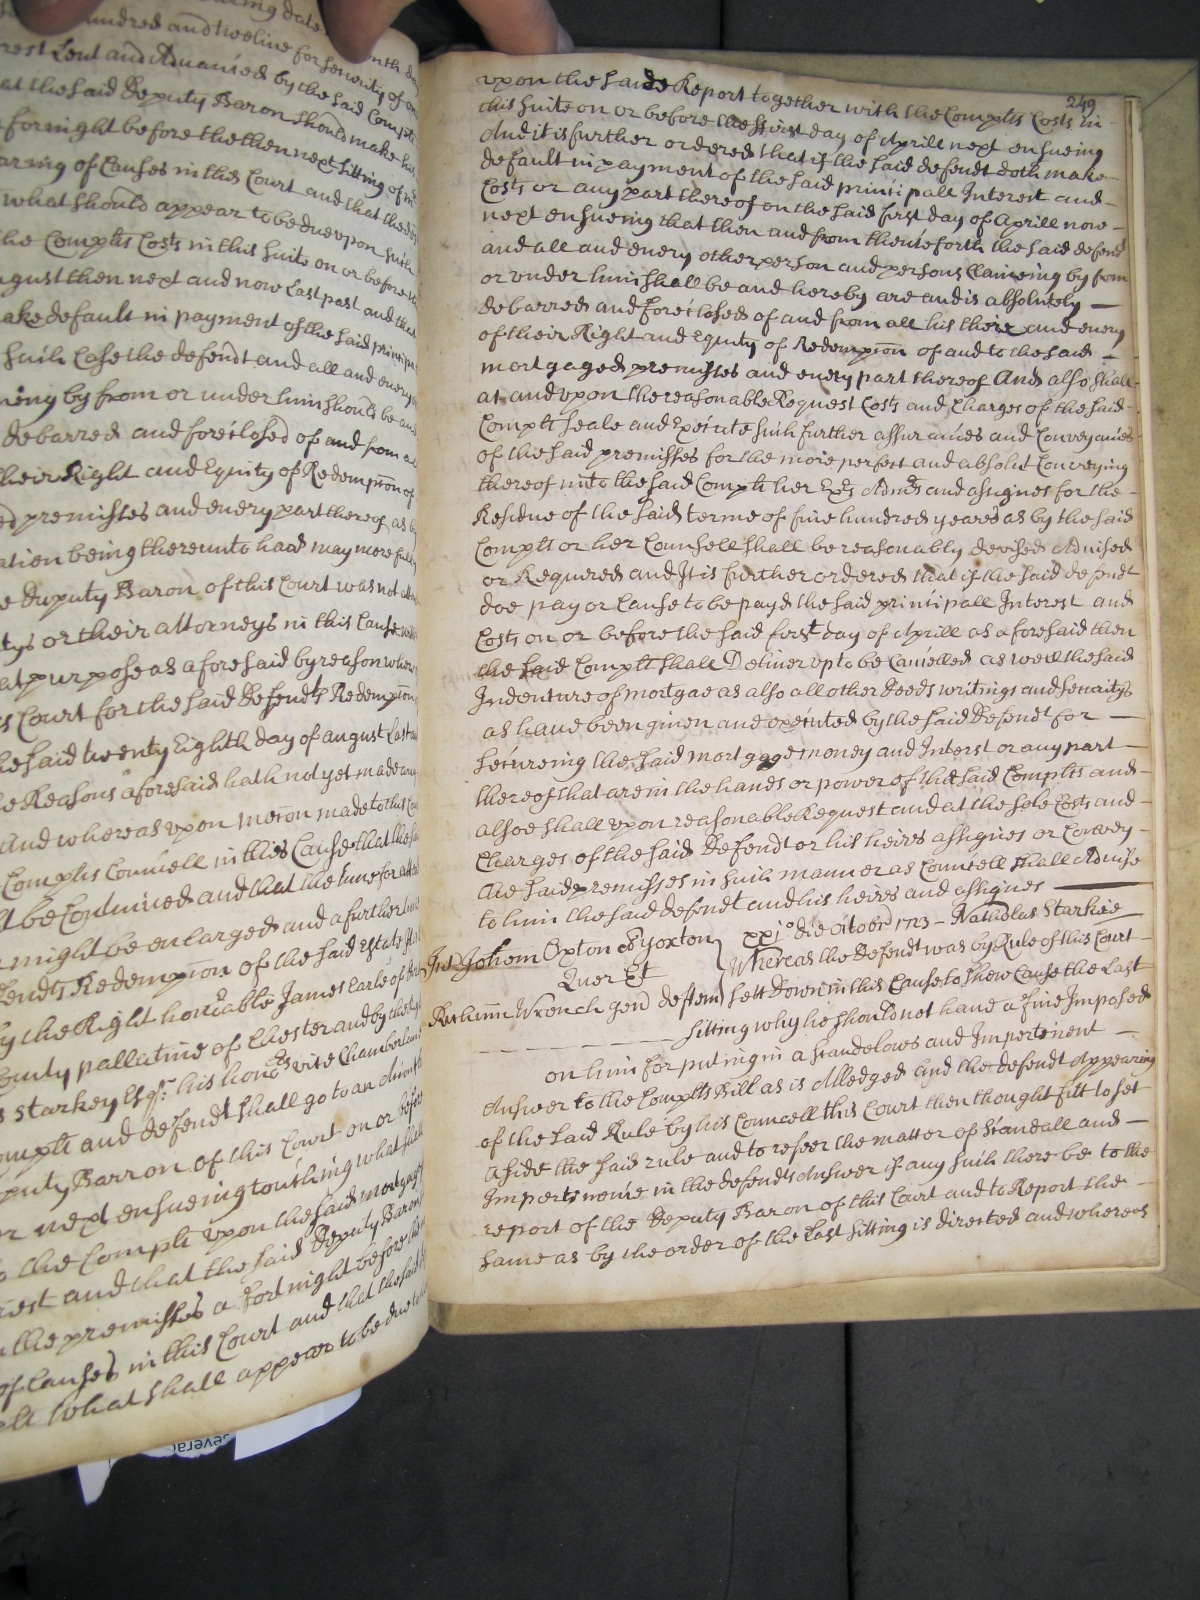 hundred and twelve for security of
rest Lent and Advanced by the said Complt
at the said Deputy Baron should make his
fornight before the then next sitting of
aring of Causes in this Court and that the
what should appear to be due upon such
the Complts Costs in this suite on or before
ugust then next and now Last past and that
ake default in payment of the said principall
such Case the defendt and all and every
meing by from or under him should be and
debarred and foreclosed of and from all
their Right and Equity of Redempcon of
ed premisses and every part thereof as by
being thereunto had may more fully
e Deputy Baron of this Court was not
tys or their attorneys in this Cause
at purpose as aforesaid by reason
s Court for the said Defendts Redempcon
he said twenty Eighth day of august Last
he Reasons aforesaid hath not yet made any
and whereas upon mocon made to this
Complts Councell in this Cause that the
be Continued and that the time for
might be enlarged and a further time
fendts Redempcon of the said Estate
by the Right honoable James Earle of
County pallatine of Chester and by the
s Starkey Esqr his honors vice Chamberlaine
omplt and defendt shall go to an
puty Barron of this Court on or before
r next ensueing touching what
o the Complt upon the said mortgage
rest and that the said Deputy Baron
the premisses a fortnight before the
of Causes in this Court and that the said
what shall appear to be due
249
upon the saide Report together with the Complts Costs in
this suite on or before the first day of Aprill next ensueing
And it is further ordered that if the said defendt doth make
default in payment of the said principall Interest and
Costs or any part thereof on the said first day of Aprill now
next ensueing that then and from thenceforth the said defendt
and all and every other person and persons Claimeing by from
or under him shall be and hereby are and is absolutely
debarred and foreclosed of and from all his their and every
of their Right and Equity of Redempcon of and to the said
mortgaged premisses and every part thereof And also shall
at and upon the reasonable Request Costs and Charges of the said
Complt seale and Execute such further assurances and Conveyances
of the said premisses for the more perfect and absolut Conveying
thereof unto the said Complt her Exrs Admrs and assignes for the
Residue of the said terme of five hundred yeares as by the said
Complt or her Counsell shall be reasonably devised Advised
or Required and It is further ordered that if the said defendt
doe pay or Cause to be payd the said principall Interest and
Costs on or before the said first day of Aprill as aforesaid then
the said Complt shall Deliver up to be Cancelled as well the said
Indenture of mortgae as also all other Deeds writings and securitys
as have been given and executed by the said Defendt for
secureing the said mortgage money and Interst or any part
thereof that are in the hands or power of the said Complts and
alsoe shall upon reasonable Request and at the sole Costs and
Charges of the said Defendt or his heires assignes or Convey
the said premisses in such manner as Councell shall Advise
to him the said defendt and his heires and assignes
Oxton xxjo die Octobr 1713 Starkie
Quer Et Whereas the Defendt was by Rule of this Court
Wrench gen sett down in this Cause to shew Cause the Last
sitting why he should not have a fine Imposed
on him for puting in a scandelows and Impertenent
Answer to the Complts Bill as is Alledged and the defendt Appearing
of the said Rule by his Councell this Court then thought fitt to set
aside the said rule and to refeer the matter of scandall and
Impertenencie in the defendts Answer if any such there be to the
report of the Deputy Baron of this Court and to Report the
same as by the order of the Last sitting is directed and whereas
severa